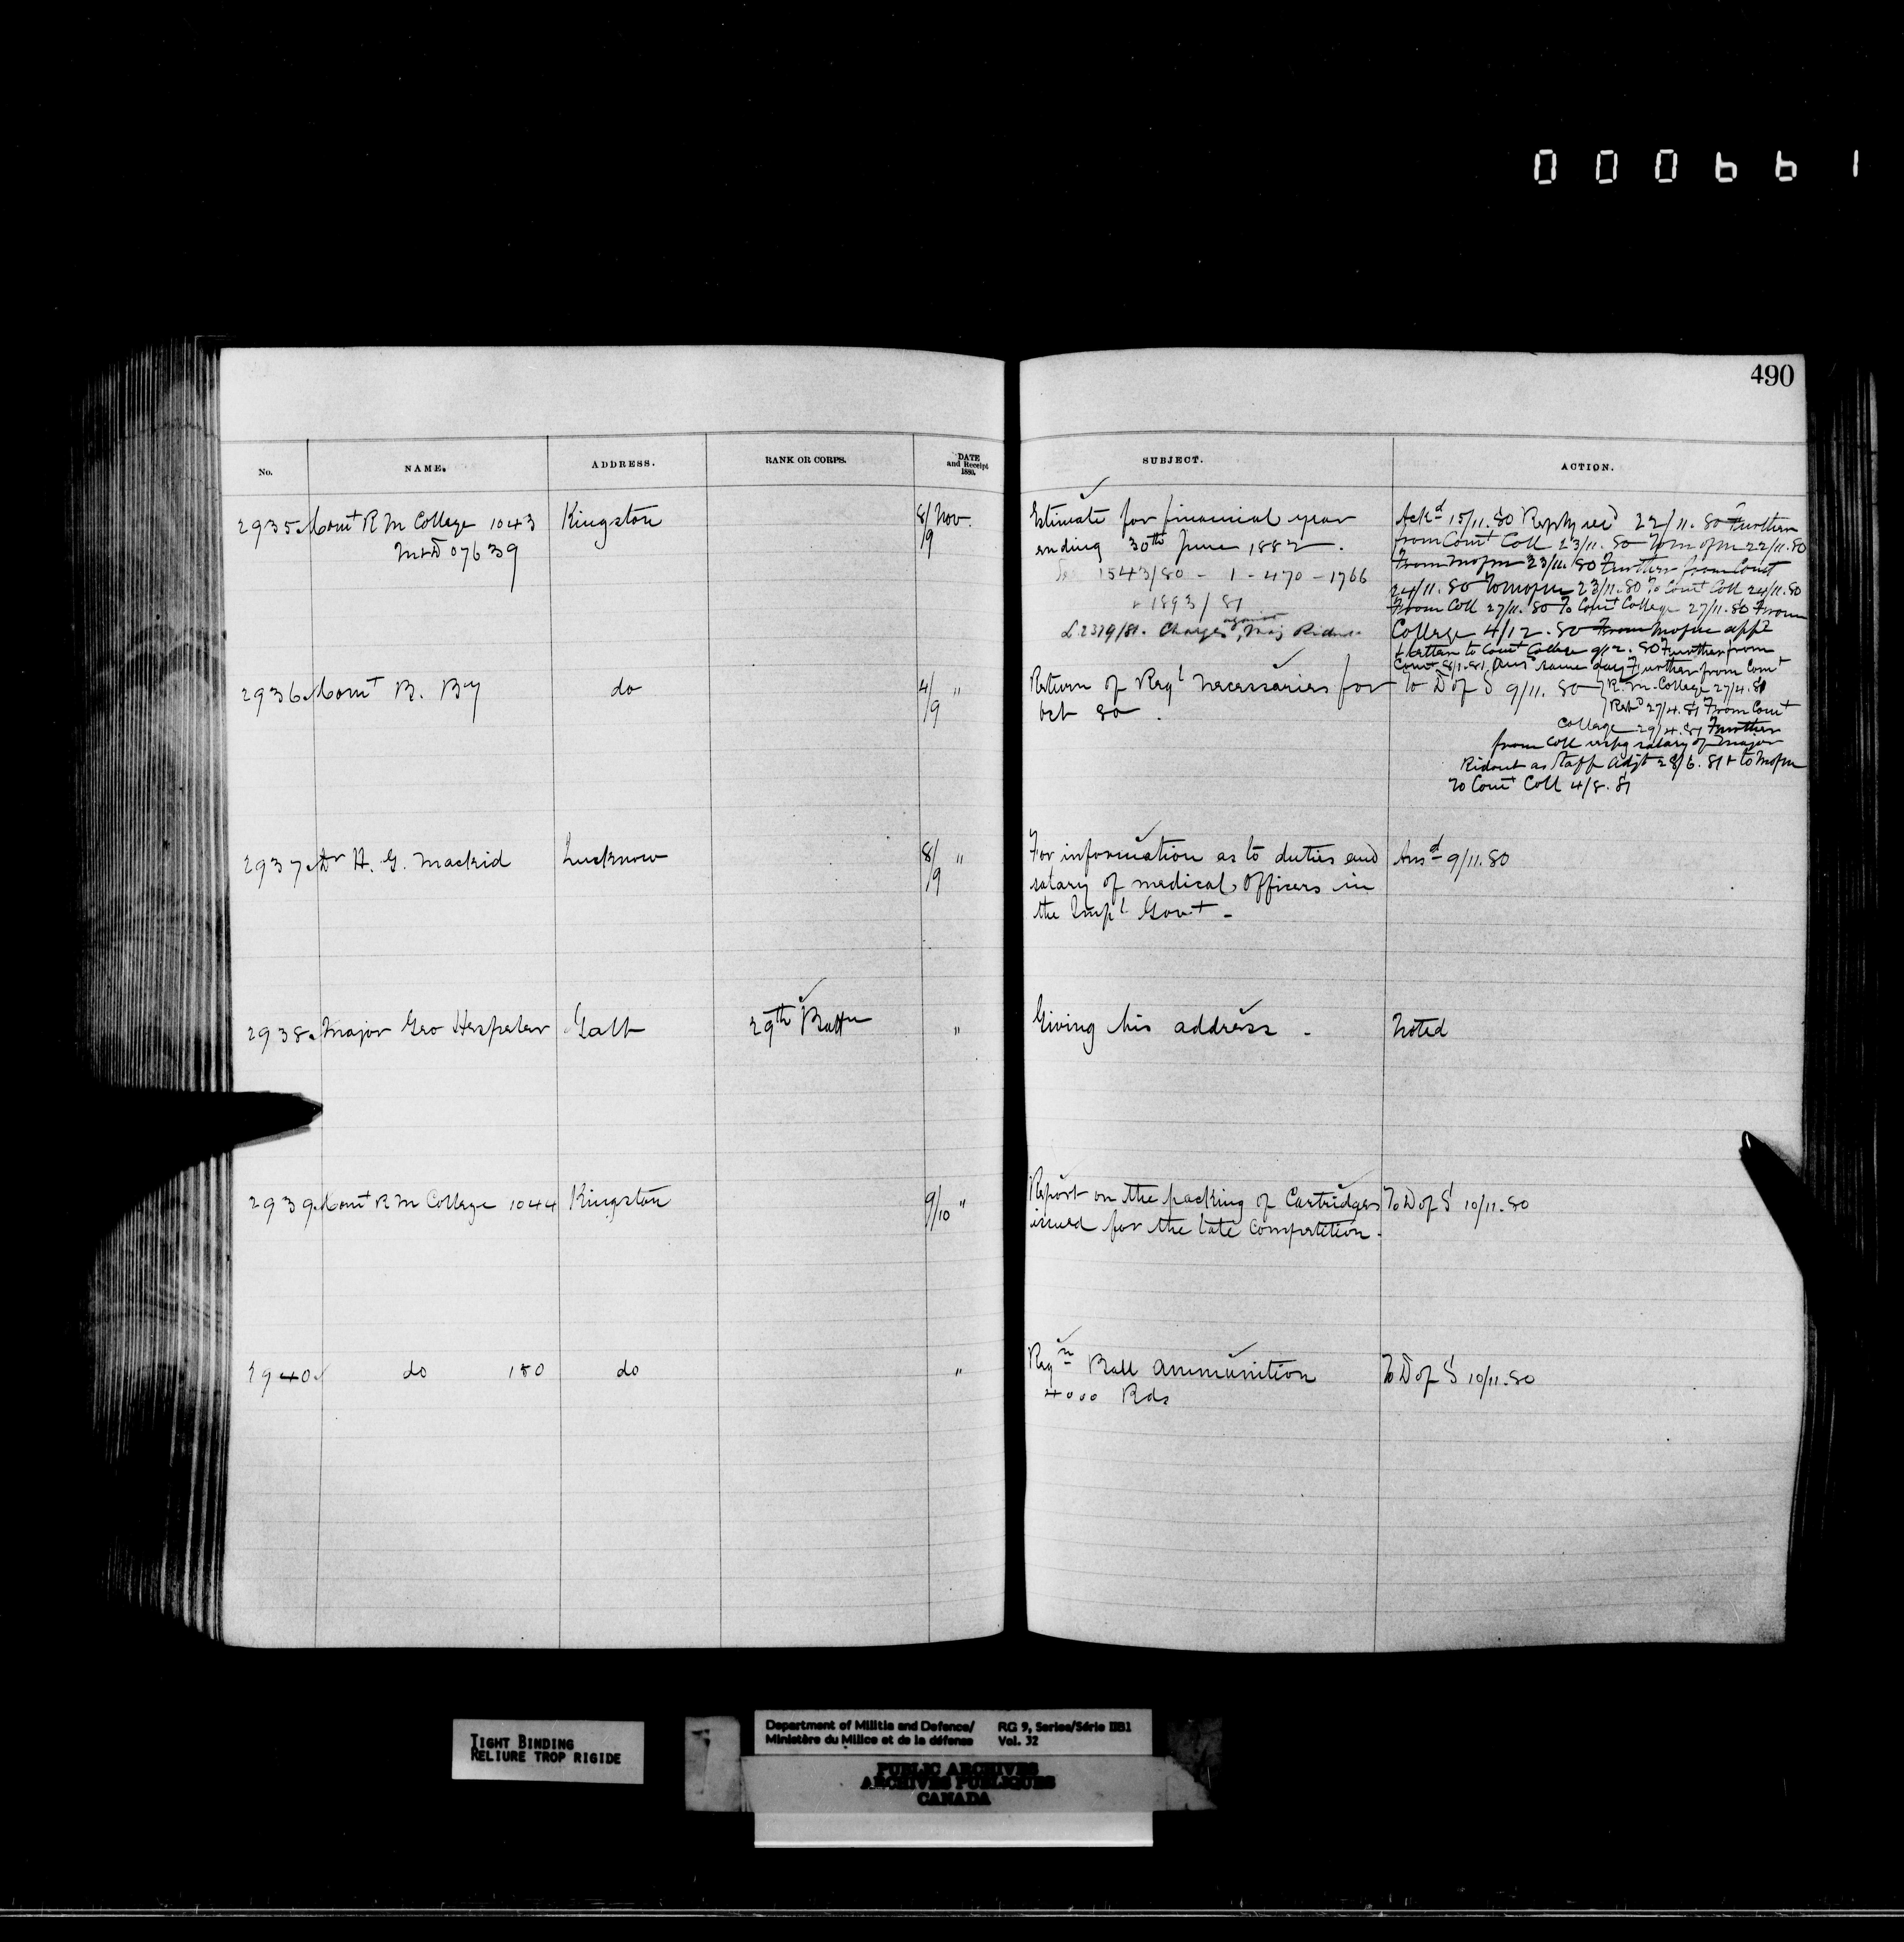 000661
490
No. NAME. ADDRESS. RANK OR CORPS. DATE and Receipt 1880. SUBJECT. ACTION.
2935 Comt R M College 1043 Kingston 8/9 Nov.
M&D 07639
Estimate for financial year
ending 30th June 1882.
See 1543/80 - 1 - 470 - 1766
& 1893/81
& 2329/81. Charges against Maj Ridout
Ackd 15/11.80 Reply recd 22/11.80 Further
from Comt Coll 23/11.80 To M of M 22/11.80
From M of M 23/11.80 Further from Comt
24/11.80 To M of M 23/11.80 To Comt Coll 24/11.80
From Coll 27/11.80 To Comt College 27/11.80 From
College 4/12.80 From M of M appd
Letter to Comt College 9/12.80 Further from
Comt 8/1.81 Ansd same day Further from Comt
R.M. College 27/4.81
Retd 27/4.81 From Comt
College 29/4.81 Further
from Coll respg salary of Major
Ridout as Staff Adjt 28/6.81 & to M of M
To Comt Coll 4/8.81
2936 Comt B. By do 4/9 "
Return of Regl Necessaries for
Oct 80.
To D of S 9/11.80
2937 Dr H. G. Mackid Lucknow 8/9 "
For information as to duties and
salary of medical Officers in
the Impl Govt -
Ansd 9/11.80
2938. Major Geo Hespeler Galt 29th Battn "
Giving his address. Noted
2939 Comt R M College 1044 Kingston 9/10 "
Report on the packing of Cartridges
issued for the late Competition.
To D of S 10/11.80
2940 do 180 do "
Reqn Ball ammunition
4000 Rds
To D of S 10/11.80
TIGHT BINDING
RELIURE TROP RIGIDE
Department of Militia and Defence/ RG 9, Series/Série IIB1
Ministère du Milice et de la défense Vol. 32
PUBLIC ARCHIVES
ARCHIVES PUBLIQUES
CANADA